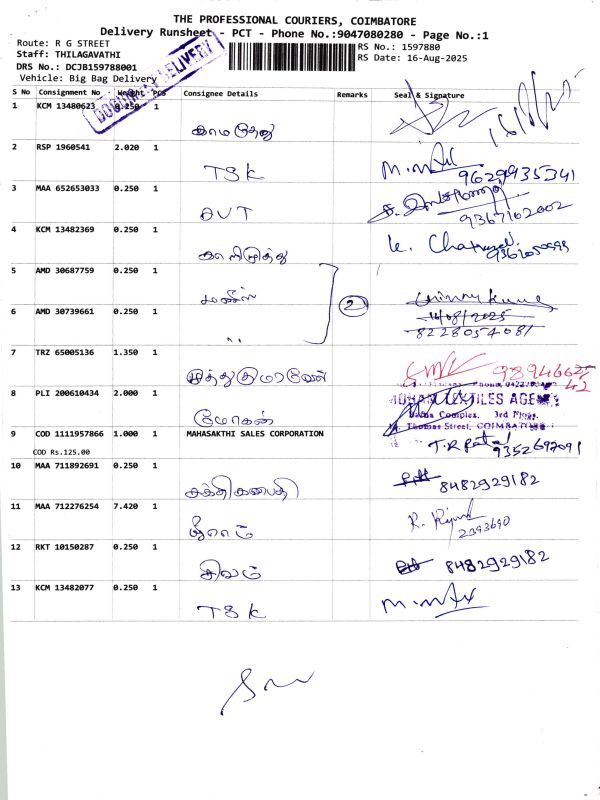 THE PROFESSIONAL COURIERS, COIMBATORE
Delivery Runsheet - PCT - Phone No.:9047080280 - Page No.:1
Route: R G STREET
RS No.: 1597880
Staff: THILAGAVATHI
RS Date: 16-Aug-2025
DRS No.: DCJB159788001
Vehicle: Big Bag Delivery
DOCUMENT DELIVERY
S No Consignment No Weight PCS Consignee Details Remarks Seal & Signature
1 KCM 13480623 0.250 1
2 RSP 1960541 2.020 1
TSK 9629935341
3 MAA 652653033 0.250 1
DVT 9367102002
4 KCM 13482369 0.250 1
5 AMD 30687759 0.250 1
2
6 AMD 30739661 0.250 1
16/08/2025
8228054081
7 TRZ 65005136 1.350 1
முத்துகுமரவேல் 9894662542
8 PLI 200610434 2.000 1
மோகன்
MOHAN TEXTILES AGENCY
Complex, 3rd Floor,
Thomas Street, COIMBATORE
9 COD 1111957866 1.000 1 MAHASAKTHI SALES CORPORATION
COD Rs.125.00
9352697091
10 MAA 711892691 0.250 1
சக்திகணபதி 8482929182
11 MAA 712276254 7.420 1
ஸ்ரீராம் 2393690
12 RKT 10150287 0.250 1
சிவம் 8482929182
13 KCM 13482077 0.250 1
TSK